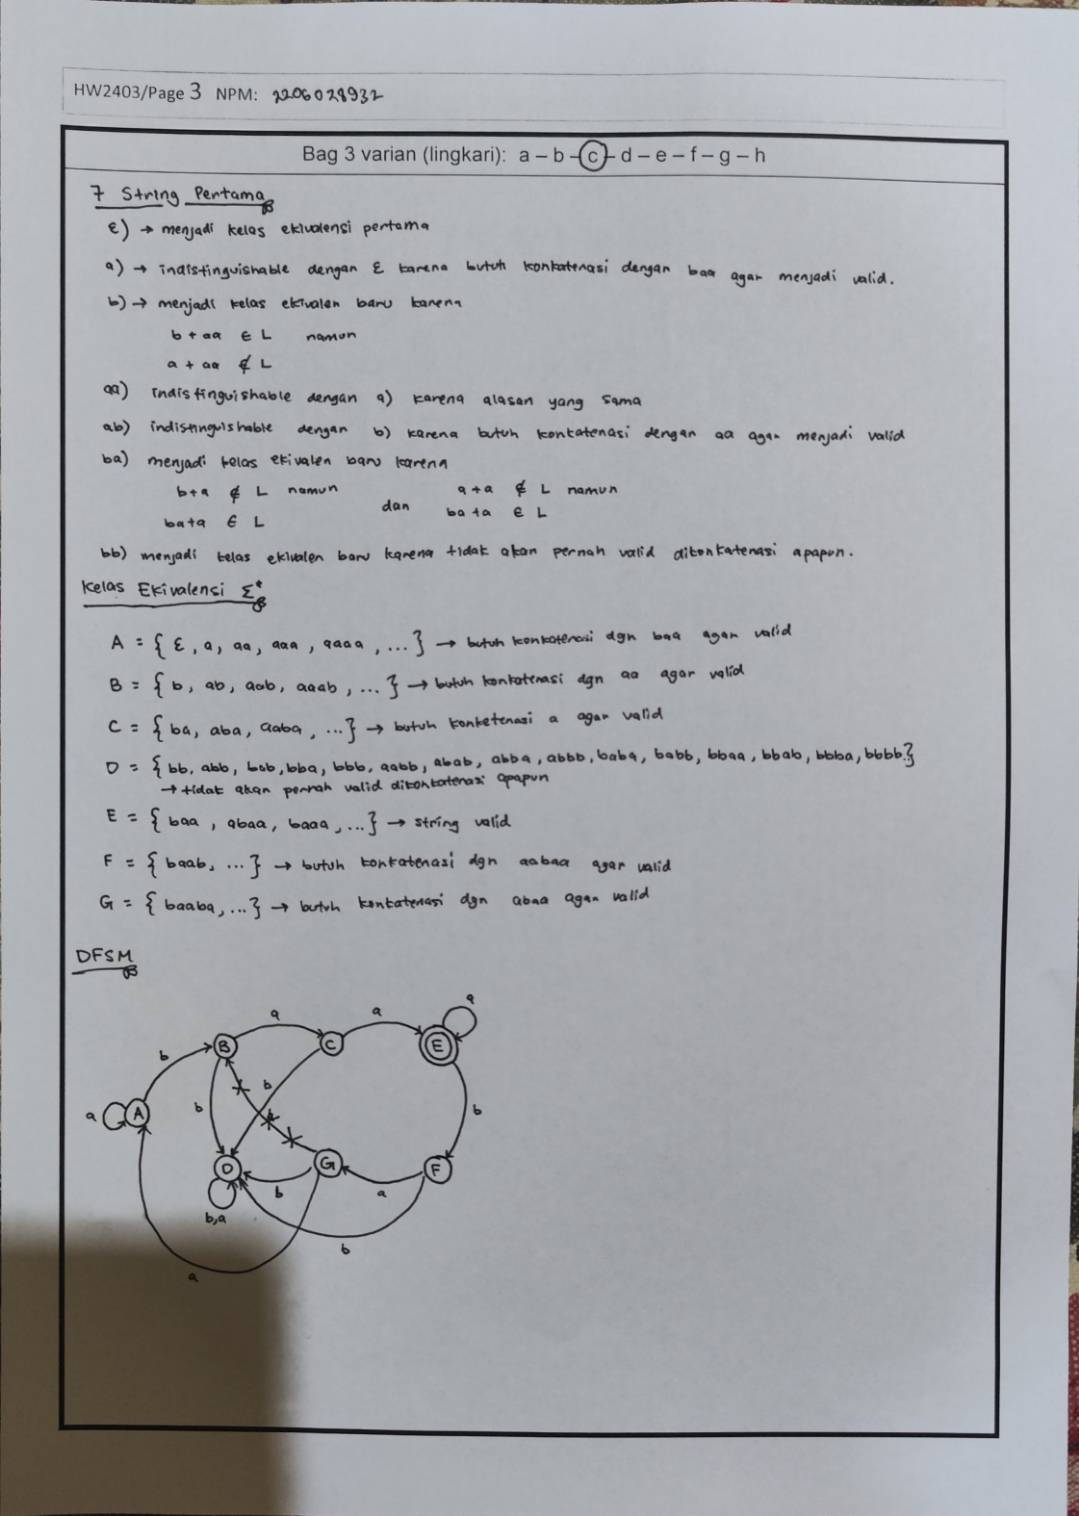 HW2403/Page 3 NPM: 2206028932
Bag 3 varian (lingkari): a – b – c – d – e – f – g – h
7 String Pertama
ε) → menjadi kelas ekivalensi pertama
a) → indistinguishable dengan ε karena butuh konkatenasi dengan baa agar menjadi valid.
b) → menjadi kelas ekivalen baru karena
b + aa ∈ L namun
a + aa ∉ L
aa) indistinguishable dengan a) karena alasan yang sama
ab) indistinguishable dengan b) karena butuh konkatenasi dengan aa agar menjadi valid
ba) menjadi kelas ekivalen baru karena
b+a ∉ L namun dan a+a ∉ L namun
ba+a ∈ L ba+a ∈ L
bb) menjadi kelas ekivalen baru karena tidak akan pernah valid dikonkatenasi apapun.
Kelas Ekivalensi Σ*
A = { ε, a, aa, aaa, aaaa, ... } → butuh konkatenasi dgn baa agar valid
B = { b, ab, aab, aaab, ... } → butuh konkatenasi dgn aa agar valid
C = { ba, aba, aaba, ... } → butuh konketenasi a agar valid
D = { bb, abb, bab, bba, bbb, aabb, abab, abba, abbb, baba, babb, bbaa, bbab, bbba, bbbb.}
→ tidak akan pernah valid dikonkatenasi apapun
E = { baa, abaa, baaa, ... } → string valid
F = { baab, ... } → butuh konkatenasi dgn aabaa agar valid
G = { baaba, ... } → butuh konkatenasi dgn abaa agar valid
DFSM
a
a a
B C E
b
b b
a A b
D G F
b a
b,a
b
a